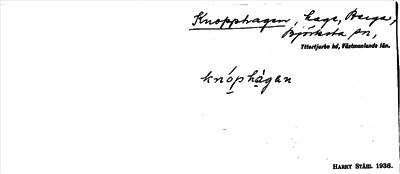 Knopphagen, hage, Berga,
Björksta sn,
Yttertjurbo hd, Västmanlands län.
knóphàgan
HARRY STÅHL 1936.